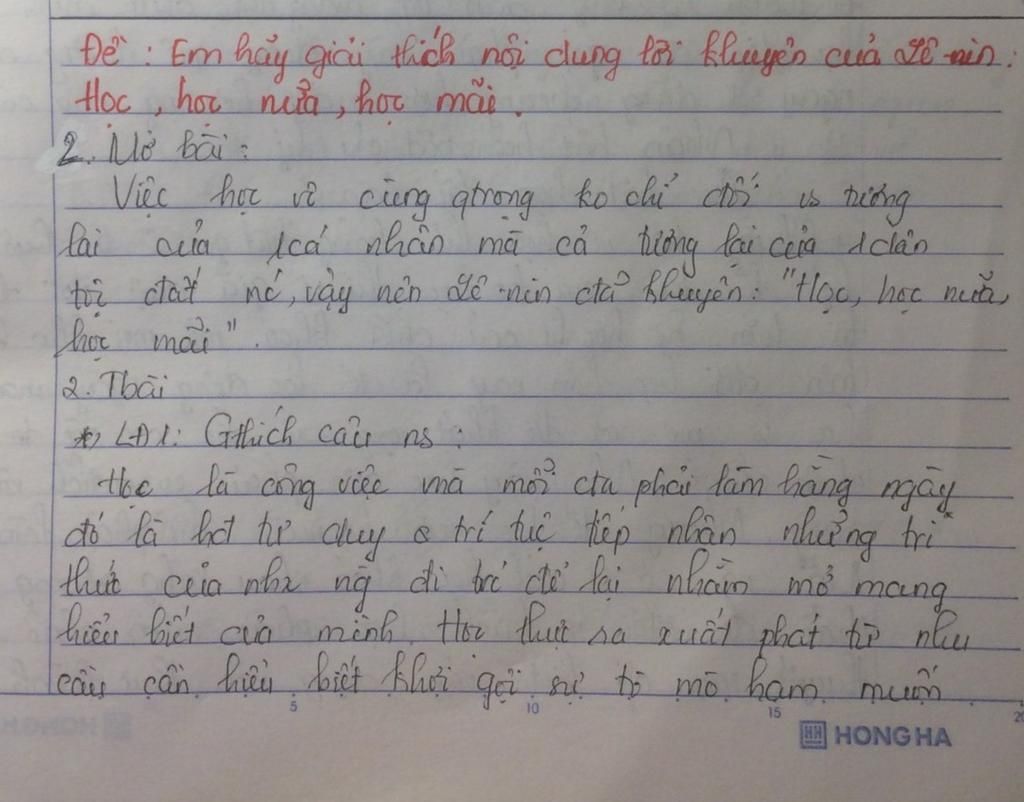 Đề : Em hãy giải thích nội dung lời khuyên của Lê-nin :
Học, học nữa, học mãi.
2. Mở bài :
Việc học vô cùng qtrọng ko chỉ đối vs tương
lai của 1 cá nhân mà cả tương lai của 1 dân
tộc đất nc, vậy nên Lê-nin đã khuyên: "Học, học nữa,
học mãi".
2. Tbài
*, LĐ1: Gthích câu ns :
Học là công việc mà mỗi cta phải làm hằng ngày
đó là hđ tư duy & trí tuệ tiếp nhận những tri
thức của nhx ng đi trc để lại nhằm mở mang
hiểu biết của mình. Học thực ra xuất phát từ nhu
cầu cần hiểu biết khơi gợi sự tò mò ham muốn
5 10 15 20
HONG HA